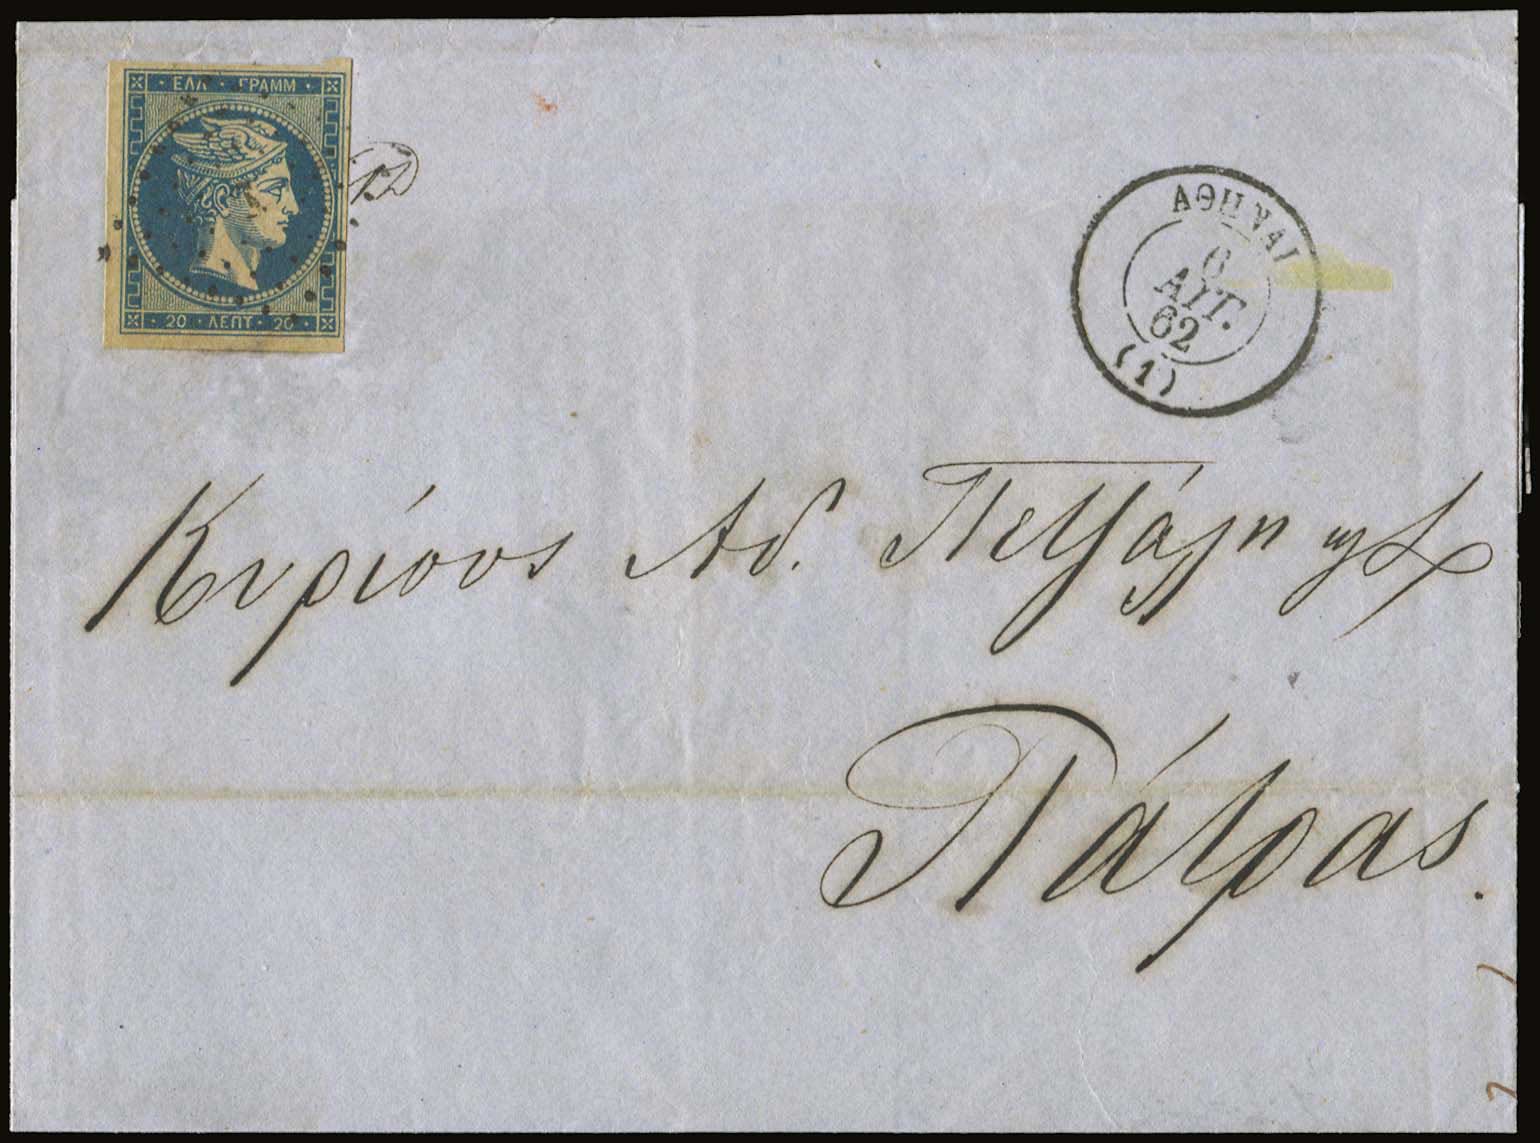 ΕΛΛ · ΓΡΑΜΜ ·
· 20 · ΛΕΠΤ · 20 ·
ΑΘΗΝΑΙ
6
ΑΥΓ.
62
(1)
Κυρίους Αδ. Πετζάλη
Πάτρας.